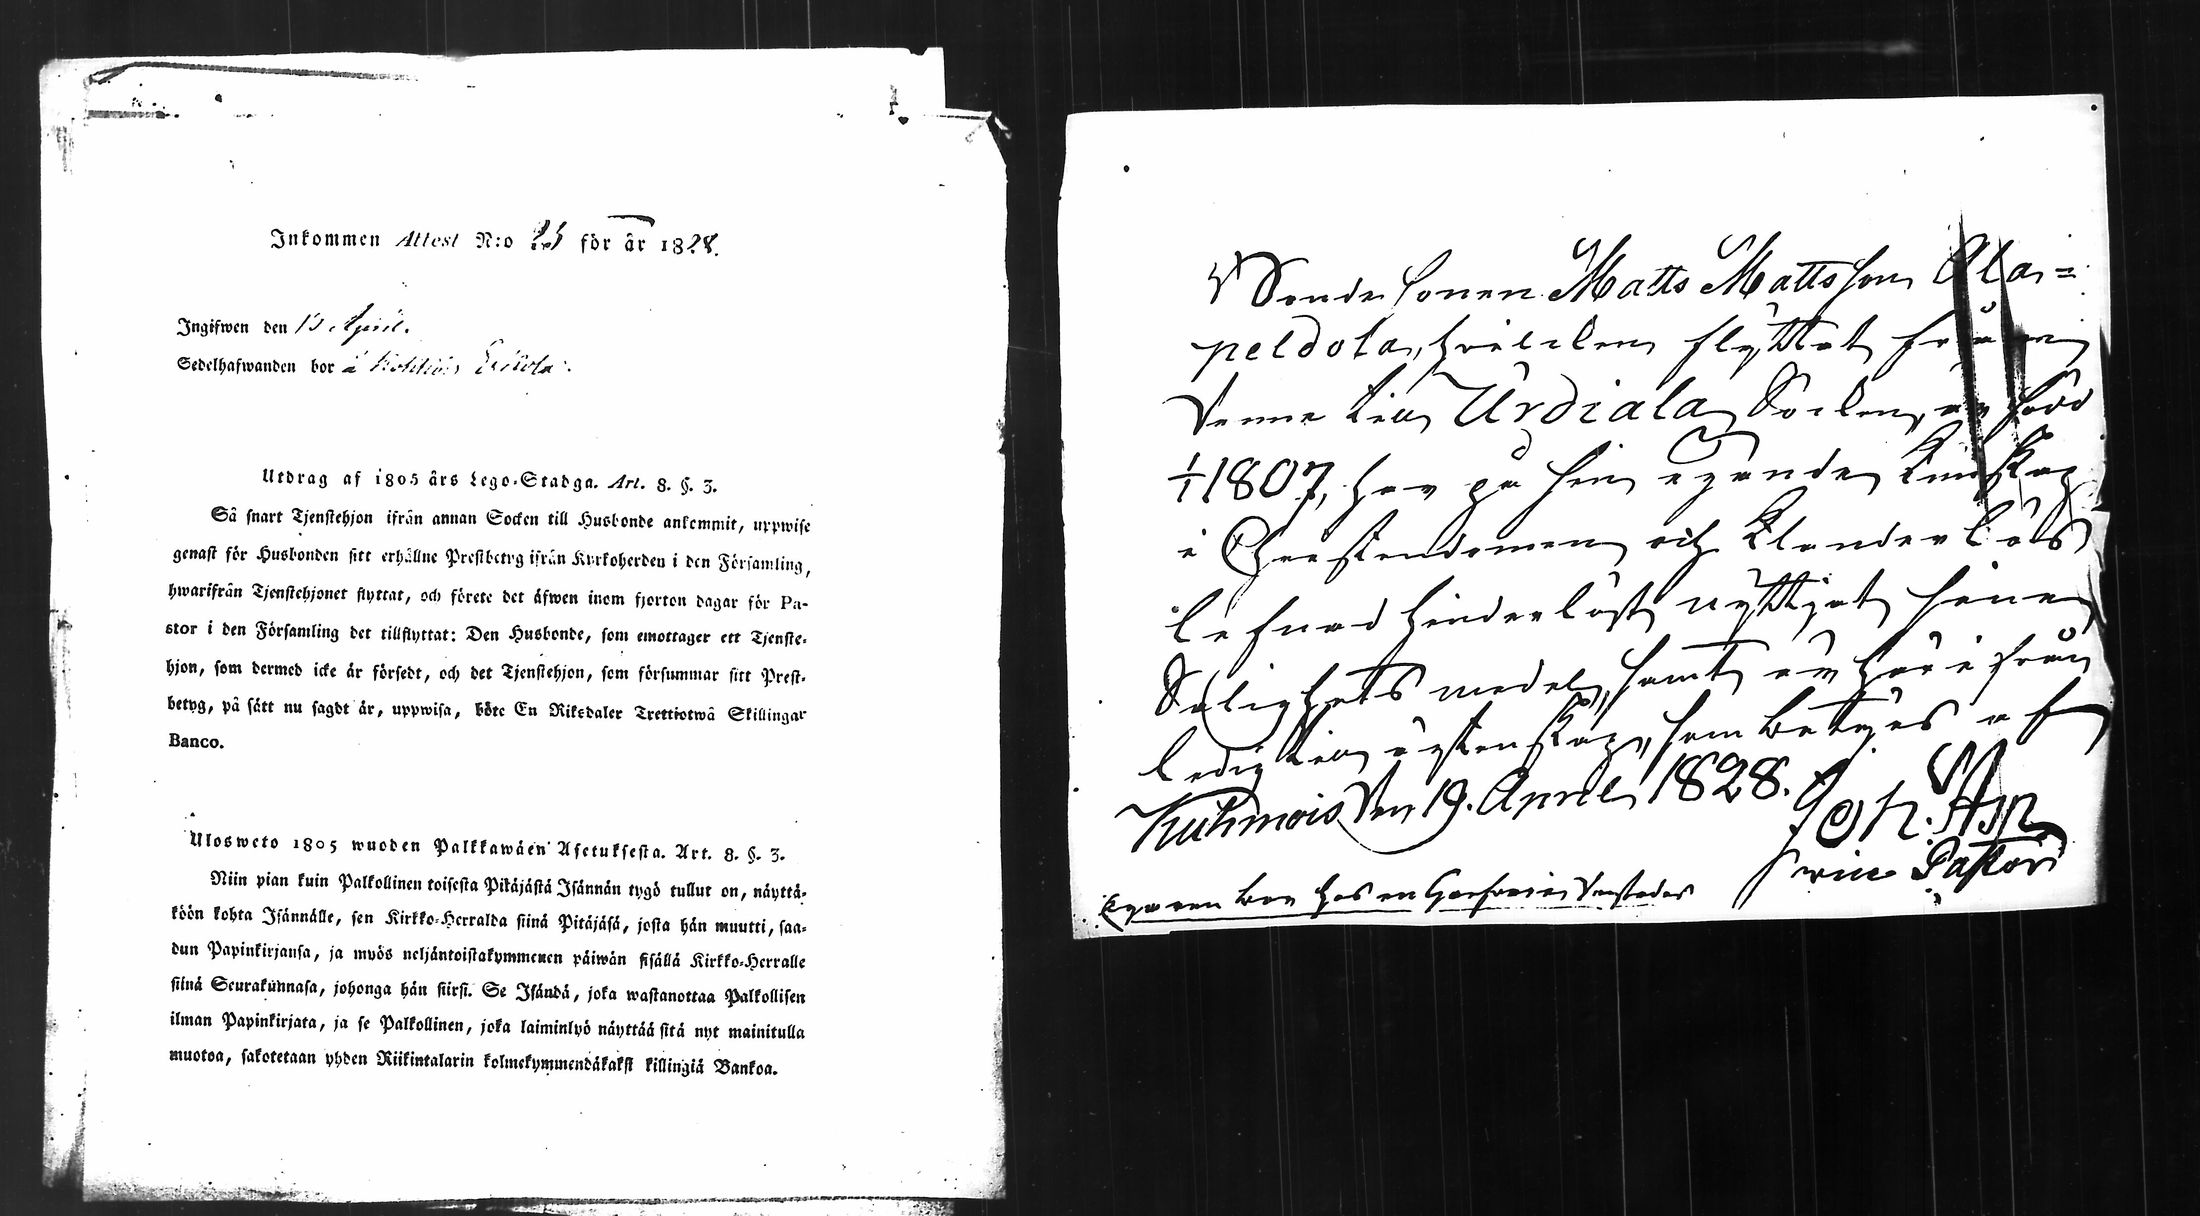 Inkommen Attest N:o 25 för år 1828.
Ingifwen den 13 April.
Sedelhafwanden bor å Erkola.
Utdrag af 1805 års Lego-Stadga. Art. 8. §. 3.
Så snart Tjenstehjon ifrån annan Socken till Husbonde ankommit, uppwise
genast för Husbonden sitt erhållne Prestbetyg ifrån Kyrkoherden i den Församling,
hwarifrån Tjenstehjonet flyttat, och förete det äfwen inom fjorton dagar för Pa-
stor i den Församling det tillflyttat: Den Husbonde, som emottager ett Tjenste-
hjon, som dermed icke är försedt, och det Tjenstehjon, som försummar sitt Prest-
betyg, på sätt nu sagdt är, uppwisa, böte En Riksdaler Trettiotwå Skillingar
Banco.
Ulosweto 1805 wuoden Palkkawäen Asetuksesta. Art. 8. §. 3.
Niin pian kuin Palkollinen toisesta Pitäjästä Isännän tygö tullut on, näyttä-
köön kohta Isännälle, sen Kirkko-Herralda siinä Pitäjäsä, josta hän muutti, saa-
dun Papinkirjansa, ja myös neljäntoistakymmenen päiwän sisällä Kirkko-Herralle
siinä Seurakunnasa, johonga hän siirsi. Se Isändä, joka wastanottaa Palkollisen
ilman Papinkirjata, ja se Palkollinen, joka laiminlyö näyttää sitä nyt mainitulla
muotoa, sakotetaan yhden Riikintalarin kolmekymmendäkaksi killingiä Bankoa.
Bonde sonen Matts Mattsson Ala=
peldola, hvilcken flyttat från
denna till Urdiala Socken, är född
1/1 1807, har på sin egande kundskap
i Christendomen och klanderlös
lefnad hinderlöst nyttjat sina
Salighets medel, samt är härifrån
ledig till ägtenskap, som betygas af
Kuhmois den 19. April 1828. Joh. Asp
vice Pastor
Egaren bor hos en